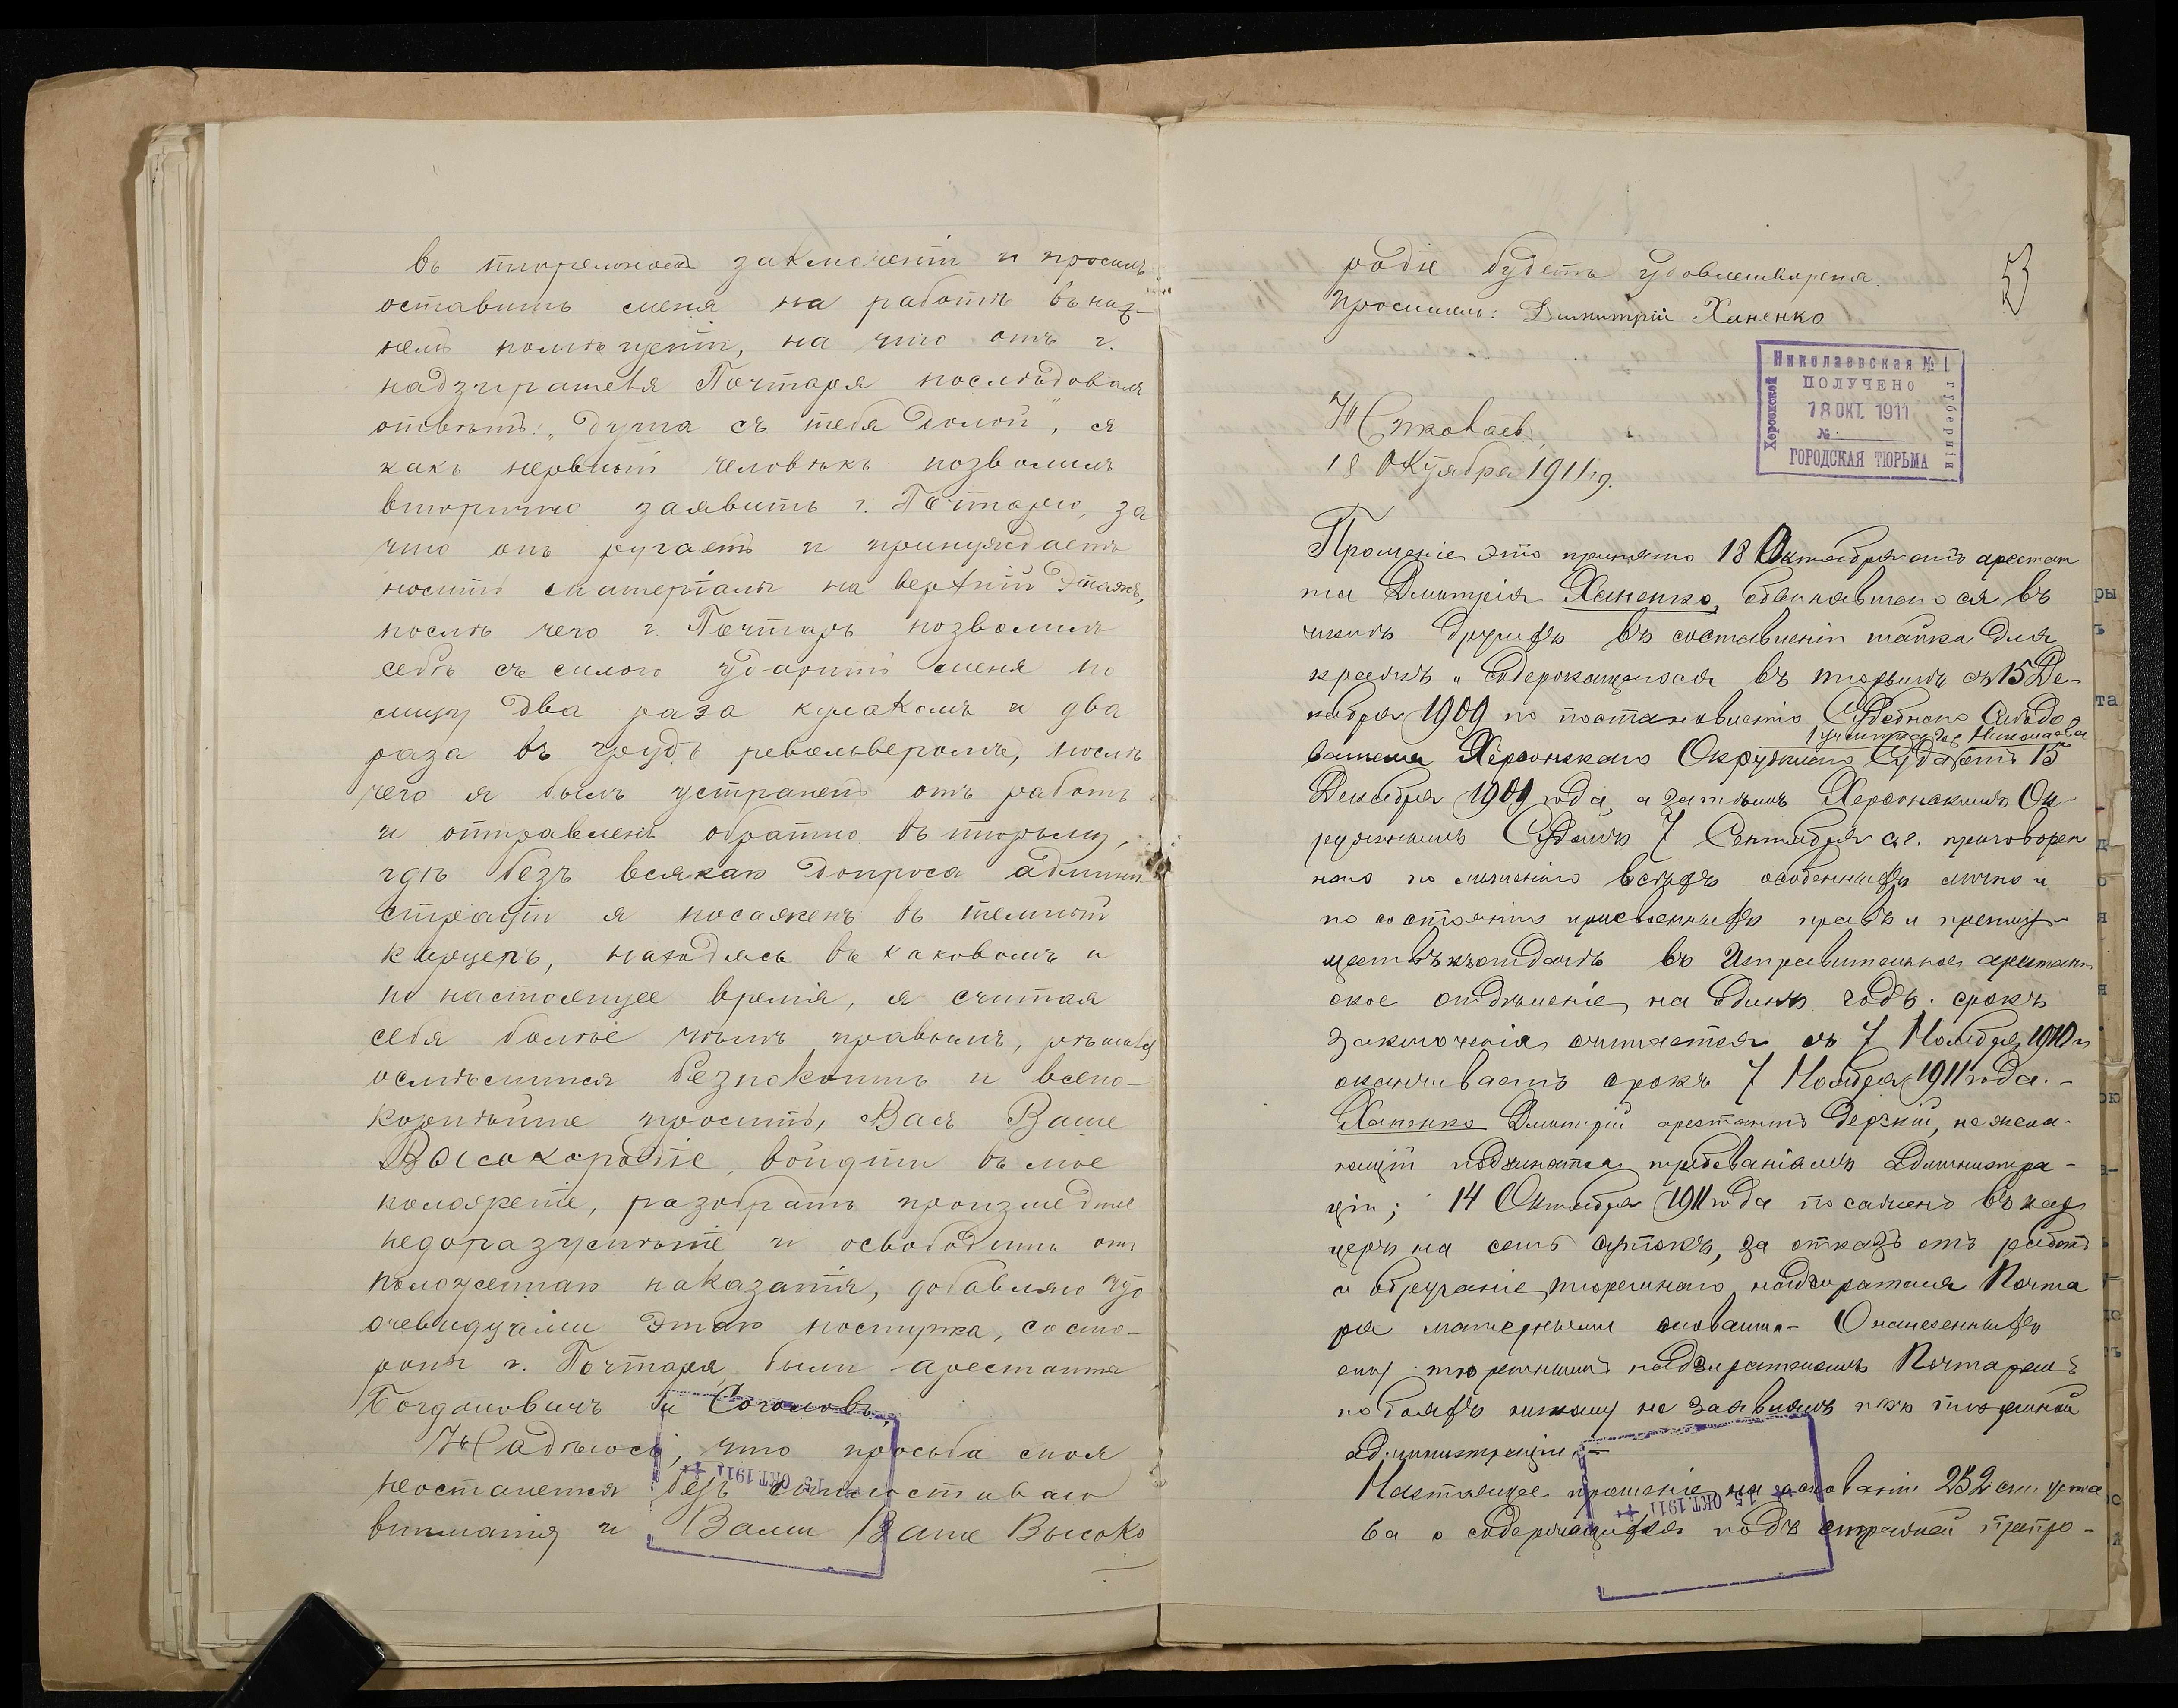 въ тюремномъ заключеніи и просилъ
оставить меня на работѣ въ ниж-
немъ помѣщеніи, на что отъ г.
надзирателя Почтаря послѣдовалъ
отвѣтъ: „душа съ тебя долой", я
какъ нервный человѣкъ позволилъ
вторично заявить г. Почтарю, за
что онъ ругаетъ и принуждаетъ
носить матеріалы на верхній этажъ,
послѣ чего г. Почтарь позволилъ
себѣ съ силою ударить меня по
лицу два раза кулакомъ и два
раза въ грудь револьверомъ, послѣ
чего я былъ устраненъ отъ работы
и отправленъ обратно въ тюрьму,
гдѣ безъ всякаго допроса админи-
страціи я посаженъ въ темный
карцеръ, находясь въ каковомъ и
по настоящее время, я считая
себя болѣе чѣмъ правымъ, рѣшился
осмѣлится безпокоить и всепо-
корнѣйше просить, Васъ Ваше
Высокородіе, войдти въ мое
положеніе, разобрать происшедшее
недоразуменіе и освободить отъ
положеннаго наказанія, добавляю что
очевидцами этого поступка, со сто-
роны г. Почтаря, были арестанты
Богдановичъ и Соколовъ.
Надѣюсь, что просьба моя
неостанется безъ милостиваго
вниманія и Вами Ваше Высоко
родіе будетъ удовлетворена.
Проситель: Димитрій Ханенко
53
Николаевская № 1
Херсонской
губерніи
ПОЛУЧЕНО
18 ОКТ. 1911
№
ГОРОДСКАЯ ТЮРЬМА
Н Николаевъ,
18 Октября 1911 г.
Прошеніе это принято 18 Октября отъ арестан
та Дмитрія Ханенко, обвинявшагося въ
числѣ другихъ въ составленіи шайки для
кражъ и содержащагося въ тюрьмѣ съ 15 Де-
кабря 1909 по постановленію Судебнаго Слѣдо
1 участка гор Николаева
вателя Херсонскаго Окружнаго Суда отъ 15
Декабря 1909 года, а затѣмъ Херсонскимъ Ок-
ружнымъ Судомъ 7 Сентября с.г. приговорен
наго по лишенію всѣхъ особенныхъ лично и
по состоянію присвоенныхъ правъ и преиму-
ществъ къ отдачѣ въ Исправительное арестант
ское отдѣленіе на одинъ годъ. срокъ
заключенія считается съ 7 Ноября 1910 и
оканчиваетъ срокъ 7 Ноября 1911 года.-
Ханенко Дмитрій арестантъ дерзкій, не жела-
ющій подчинятся требованіямъ администра-
ціи; 14 Октября 1911 года посаженъ въ кар
церъ на семь сутокъ, за отказъ отъ работъ
и обруганіе тюремнаго надзирателя Почта
ря матерными словами.- О нанесенныхъ
ему тюремнымъ надзирателемъ Почтаремъ
побояхъ никому не заявлялъ изъ тюремной
администраціи.-
Настоящее прошеніе на основаніи 252 ст. уста
ва о содержащихся подъ стражей препро-
15 ОКТ. 1911
15 ОКТ. 1911